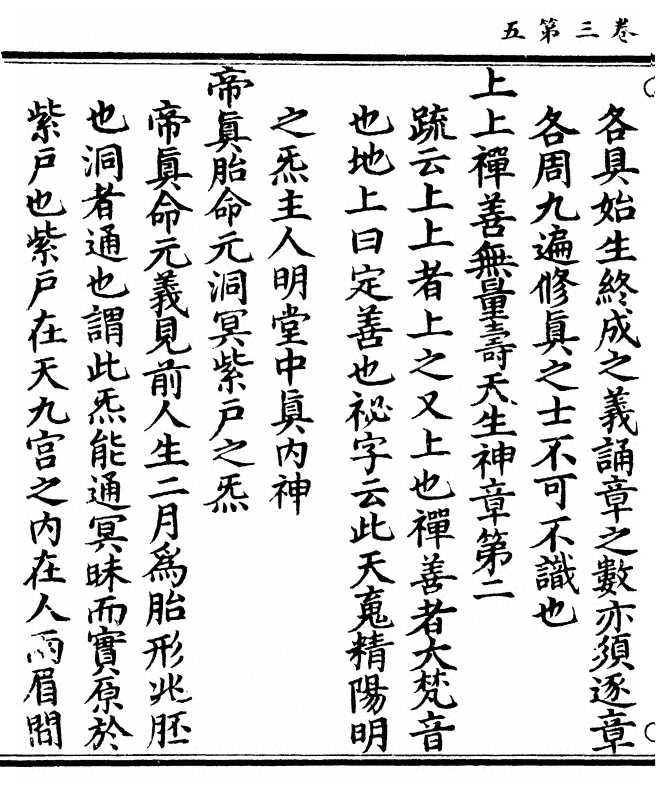 卷三第五
各具始生終成之義誦章之數亦須逐章
各周九遍修眞之士不可不識也
上上禪善無量壽天生神章第二
䟽云上上者上之又上也禪善者大梵音
也地上曰定善也祕字云此天䰟精陽明
之炁主人明堂中眞内神
帝眞胎命元洞冥紫戶之炁
帝眞命元義見前人生二月爲胎形兆胚
也洞者通也謂此炁能通冥昧而實原於
紫戶也紫戶在天九宫之内在人兩眉間